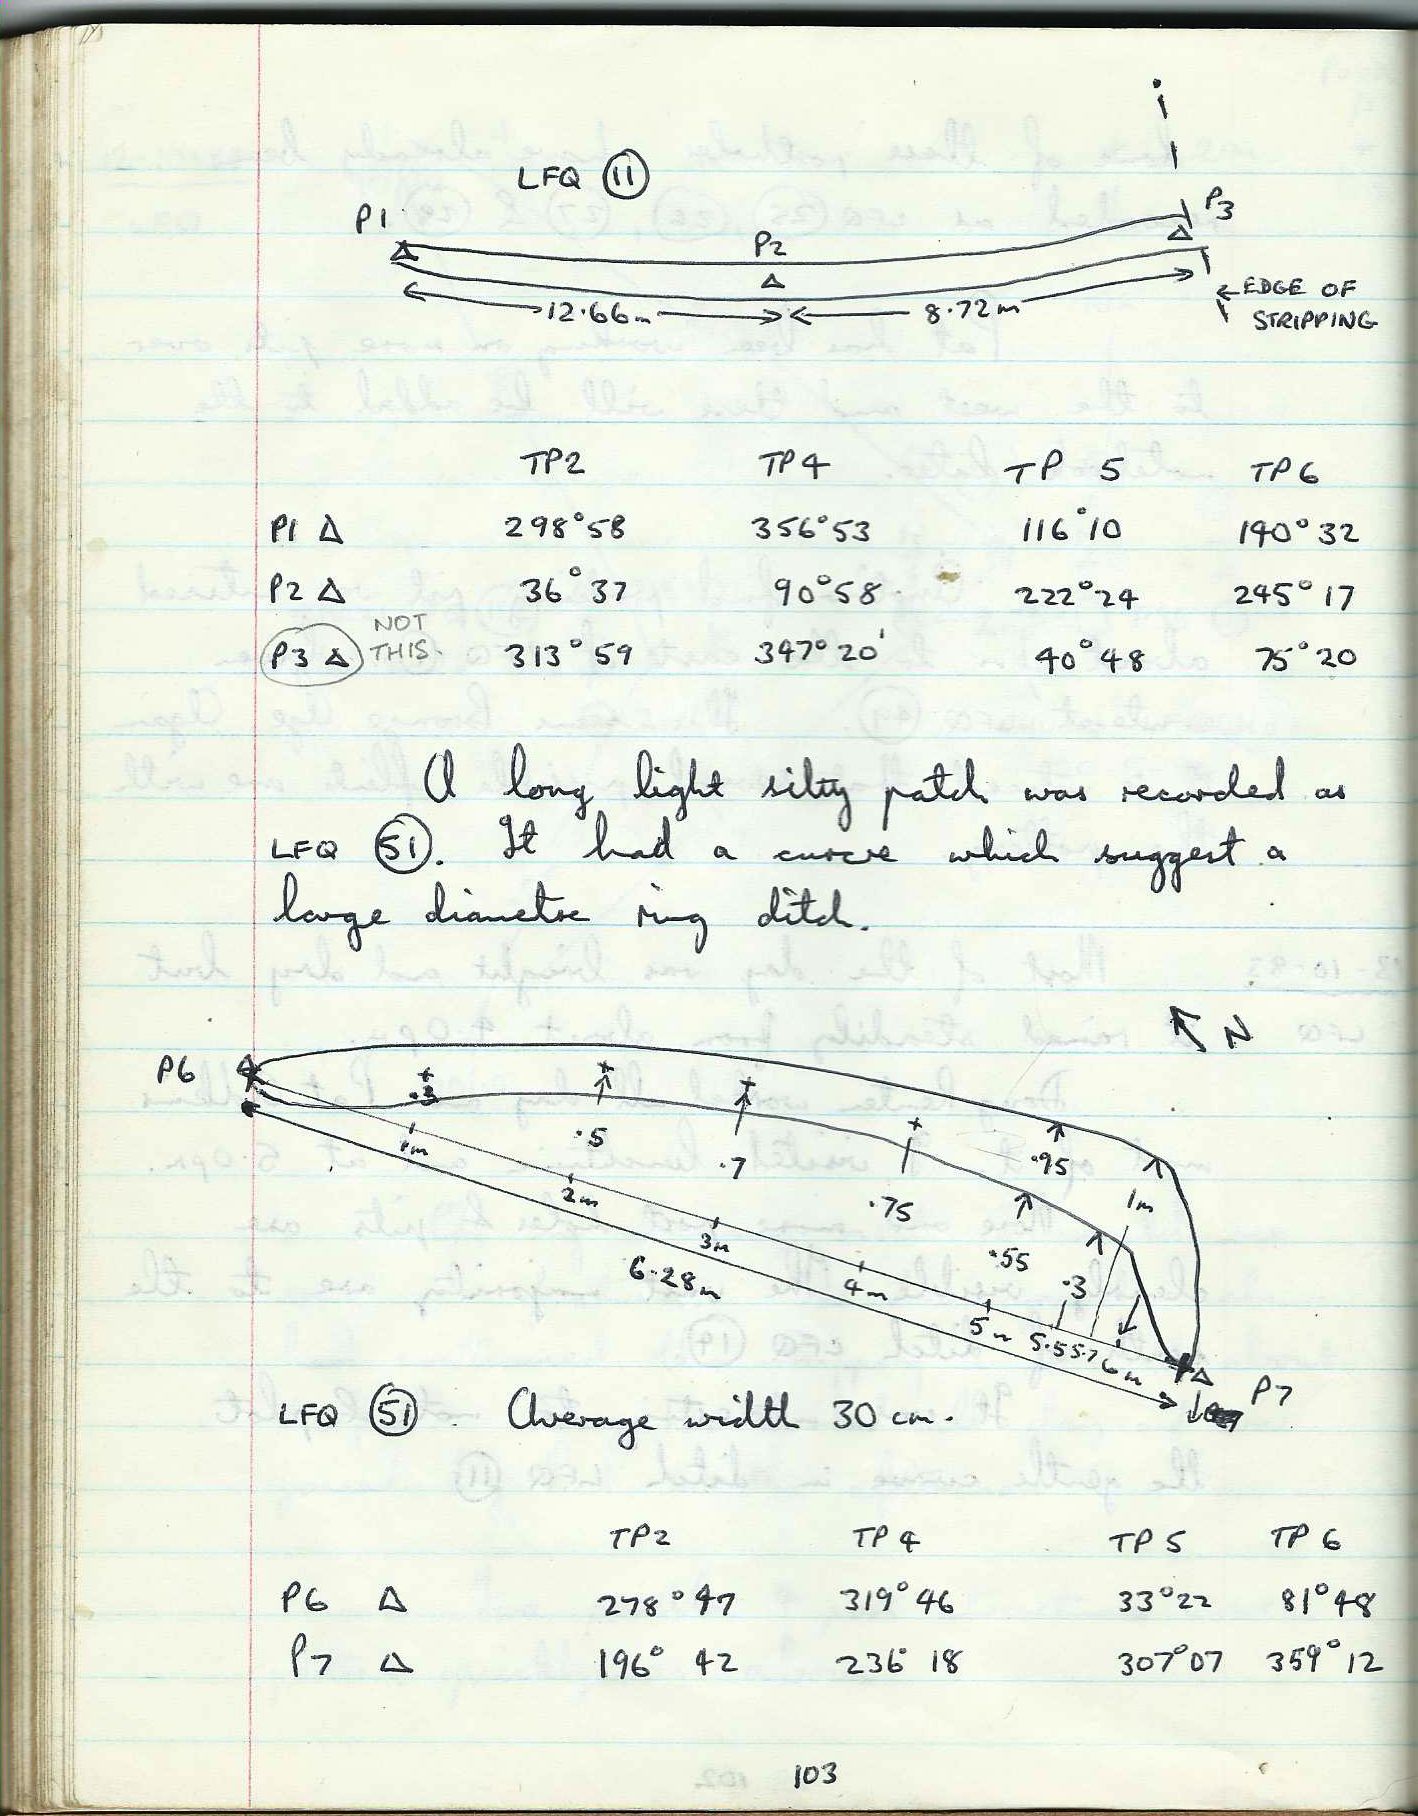 LFQ 11
P1
P2
P3
12.66m
8.72m
EDGE OF
STRIPPING
TP2 TP4 TP 5 TP6
P1 △ 298°58 356°53 116°10 140°32
P2 △ 36°37 90°58 222°24 245°17
NOT
P3 △ THIS. 313°59 347°20' 40°48 75°20
A long light silty patch was recorded as
LFQ 51. It had a curve which suggest a
large diameter ring ditch.
N
P6
.3
.5
.7
.75
.95
1m
.55
.3
1m
2m
3m
4m
5m
5.5
5.7
6m
6.28m
P7
LFQ 51. Average width 30 cm.
TP2 TP4 TP5 TP6
P6 △ 278°47 319°46 33°22 81°48
P7 △ 196° 42 236° 18 307°07 359°12
103